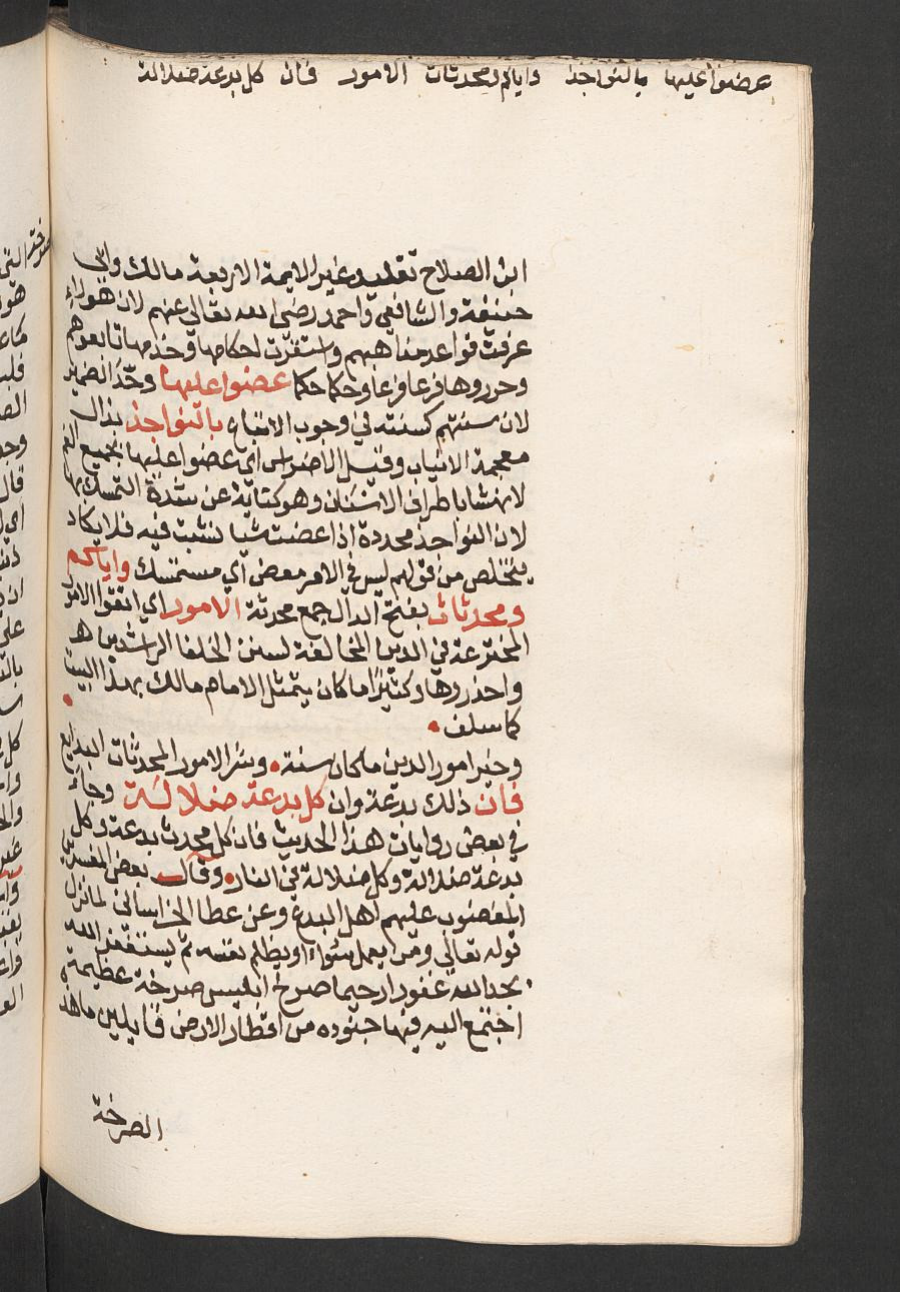 عضوا عليها بالنواجذ واياكم ومحدثات الامور فان كل بدعة ضلالة
ابن الصلاح تقليد غير الايمة الاربعة مالك وابي
حنيفة والشافعي واحمد رضي الله تعالي عنهم لان هولاء
عرفت قواعد مذاهبهم واستقرت احكامها وخدمها تابعوهم
وحرروها فرعا فرعا وحكما حكما عضوا عليها وحد الضمير
لان سنتهم كسنته في وجوب الاتباع بالنواجذ بذال
معجمة الانياب وقيل الاضراس اي عضوا عليها بجميع الفم
لا نهشا باطراف الاسنان وهو كناية عن شدة التمسك بها
لان النواجذ محددة اذا عضت شيا نشبت فيه فلا يكاد
يتخلص من قولهم ليس في الامر معض اي مستمسك واياكم
ومحدثات بفتح الدال جمع محدثة الامور اي اتقوا الامور
المخترعة في الدين المخالفة لسنن الخلفا الراشدين هـ
واحذروها وكثيرا ما كان يتمثل الامام مالك بهذا البيت
كما سلف
وخير امور الدين ما كان سنة وشر الامور المحدثات البدايع
فان ذلك بدعة وان كل بدعة ضلالة وجاء
في بعض روايات هذا الحديث فان كل محدث بدعة وكل
بدعة ضلالة وكل ضلالة في النار وقال بعض المفسرين
المغضوب عليهم اهل البدع وعن عطا الخراساني لما نزل
قوله تعالي ومن يعمل سوءا او يظلم نفسه ثم يستغفر الله
يجد الله غفورا رحيما صرخ ابليس صرخة عظيمة
اجتمع اليه فيها جنوده من اقطار الارض قايلين ما هذه
الصرخة